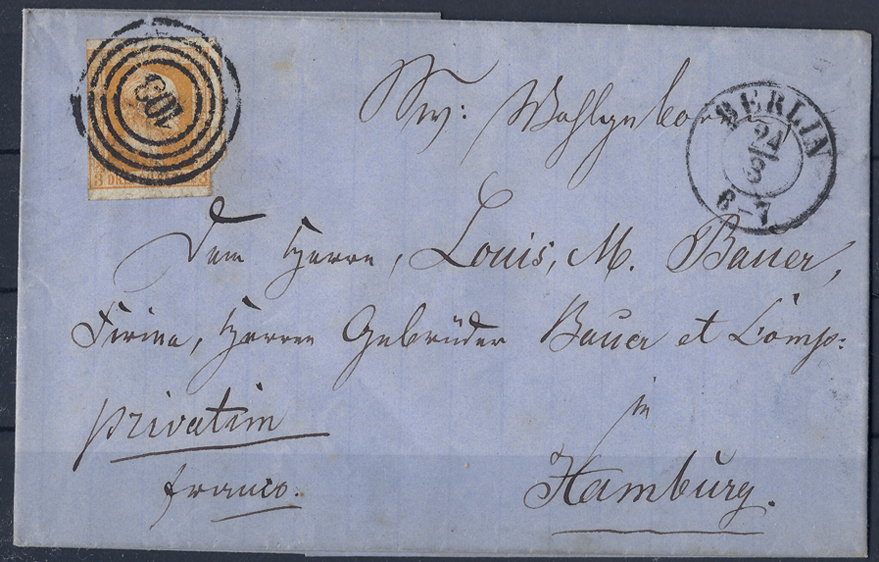 103
3 3
BERLIN
24
3
6-7
Sr: Wohlgeboren,
Dem Herrn, Louis, M. Bauer,
Firma, Herren Gebrüder Bauer et Comp:
privatim
in
franco.
Hamburg.